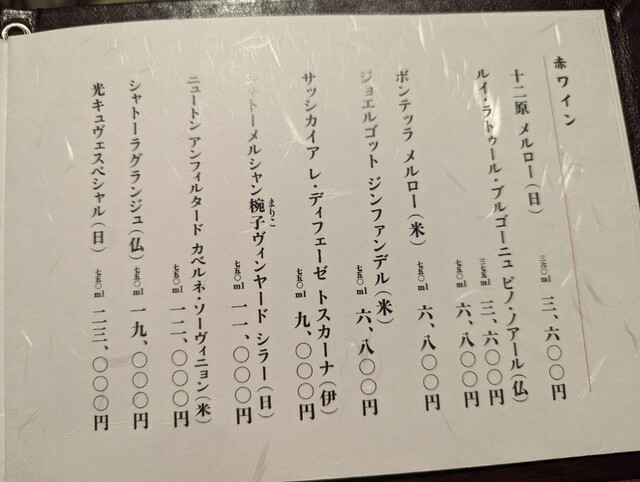 赤ワイン
十二原 メルロー（日） 三六〇ml 三、六〇〇円
ルイ・ラトゥール・ブルゴーニュ ピノ・ノアール（仏） 三七五ml 三、六〇〇円
七五〇ml 六、八〇〇円
ボンテッラ メルロー（米） 七五〇ml 六、八〇〇円
ジョエルゴット ジンファンデル（米） 七五〇ml 六、八〇〇円
サッシカイア レ・ディフェーゼ トスカーナ（伊） 七五〇ml 九、〇〇〇円
シャトーメルシャン椀子ヴィンヤード シラー（日） 七五〇ml 一一、〇〇〇円
まりこ
ニュートン アンフィルタード カベルネ・ソーヴィニョン（米） 七五〇ml 一二、〇〇〇円
シャトーラグランジュ（仏） 七五〇ml 一九、〇〇〇円
光キュヴェスペシャル（日） 七五〇ml 二三、〇〇〇円